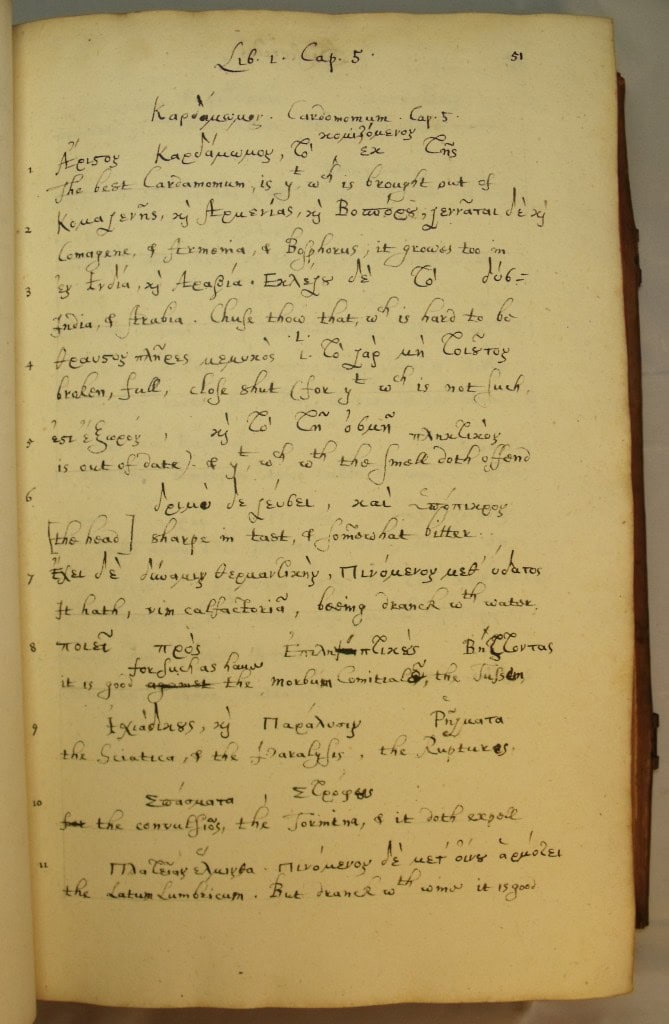 Lib. 1. Cap. 5. 51
Καρδάμωμος. Cardomomum. Cap. 5.
κομιζόμενον
1 Άριστον Καρδάμωμον, τὸ ἐκ τῆς
The best Cardamomum, is yt, wch is brought out of
2 Κομαγενῆς, κỳ Αρμενίας, κỳ Βοσπόρου, γεννᾶται δὲ κỳ
Comagene, & Armenia, & Bosphorus; it growes too in
3 ἐν Ινδία, κỳ Αραβία. Εκλέγου δὲ Τὸ δύσ=
India, & Arabia. Chuse thow that, wch is hard to be
4 θραυστον πλῆρες μεμυκὸς .i. Τὸ γὰρ μὴ Τοιοῦτον
broken, full, close shut (for yt wch is not such.
5 ἐστι ἔξωρον, κỳ Τὸ Τῆ ὀσμῆ πληκτικὸν
is out of date). & yt, wch wth the smell doth offend
6 δριμὺ δε γεύσει, καὶ ὑπόπικρον
[the head] sharpe in tast, & somewhat bitter.
7 Ἔχει δὲ δύναμιν θερμαντικὴν, Πινόμενον μεθ' ὑδατος
It hath, vim calfactoriā, beeing dranck wth water,
8 ποιεῖ πρὸς Ἐπιληπτικοὺς Βήττοντας
for such as haue
it is good against the morbum Comitialē, the Tussem,
9 Ἰχιαδικους, κỳ Παράλυσιν Ρήγματα
the Sciatica, & the Paralysis, the Ruptures.
10 Σπάσματα, Στρόφους
for the convulsiōs, the Tormina, & it doth expell
11 Πλατεῖαν ἕλμινθα. Πινόμενον δὲ μετ' οἴνου ἁρμόζει
the Latum Lumbricum. But dranck wth wine it is good